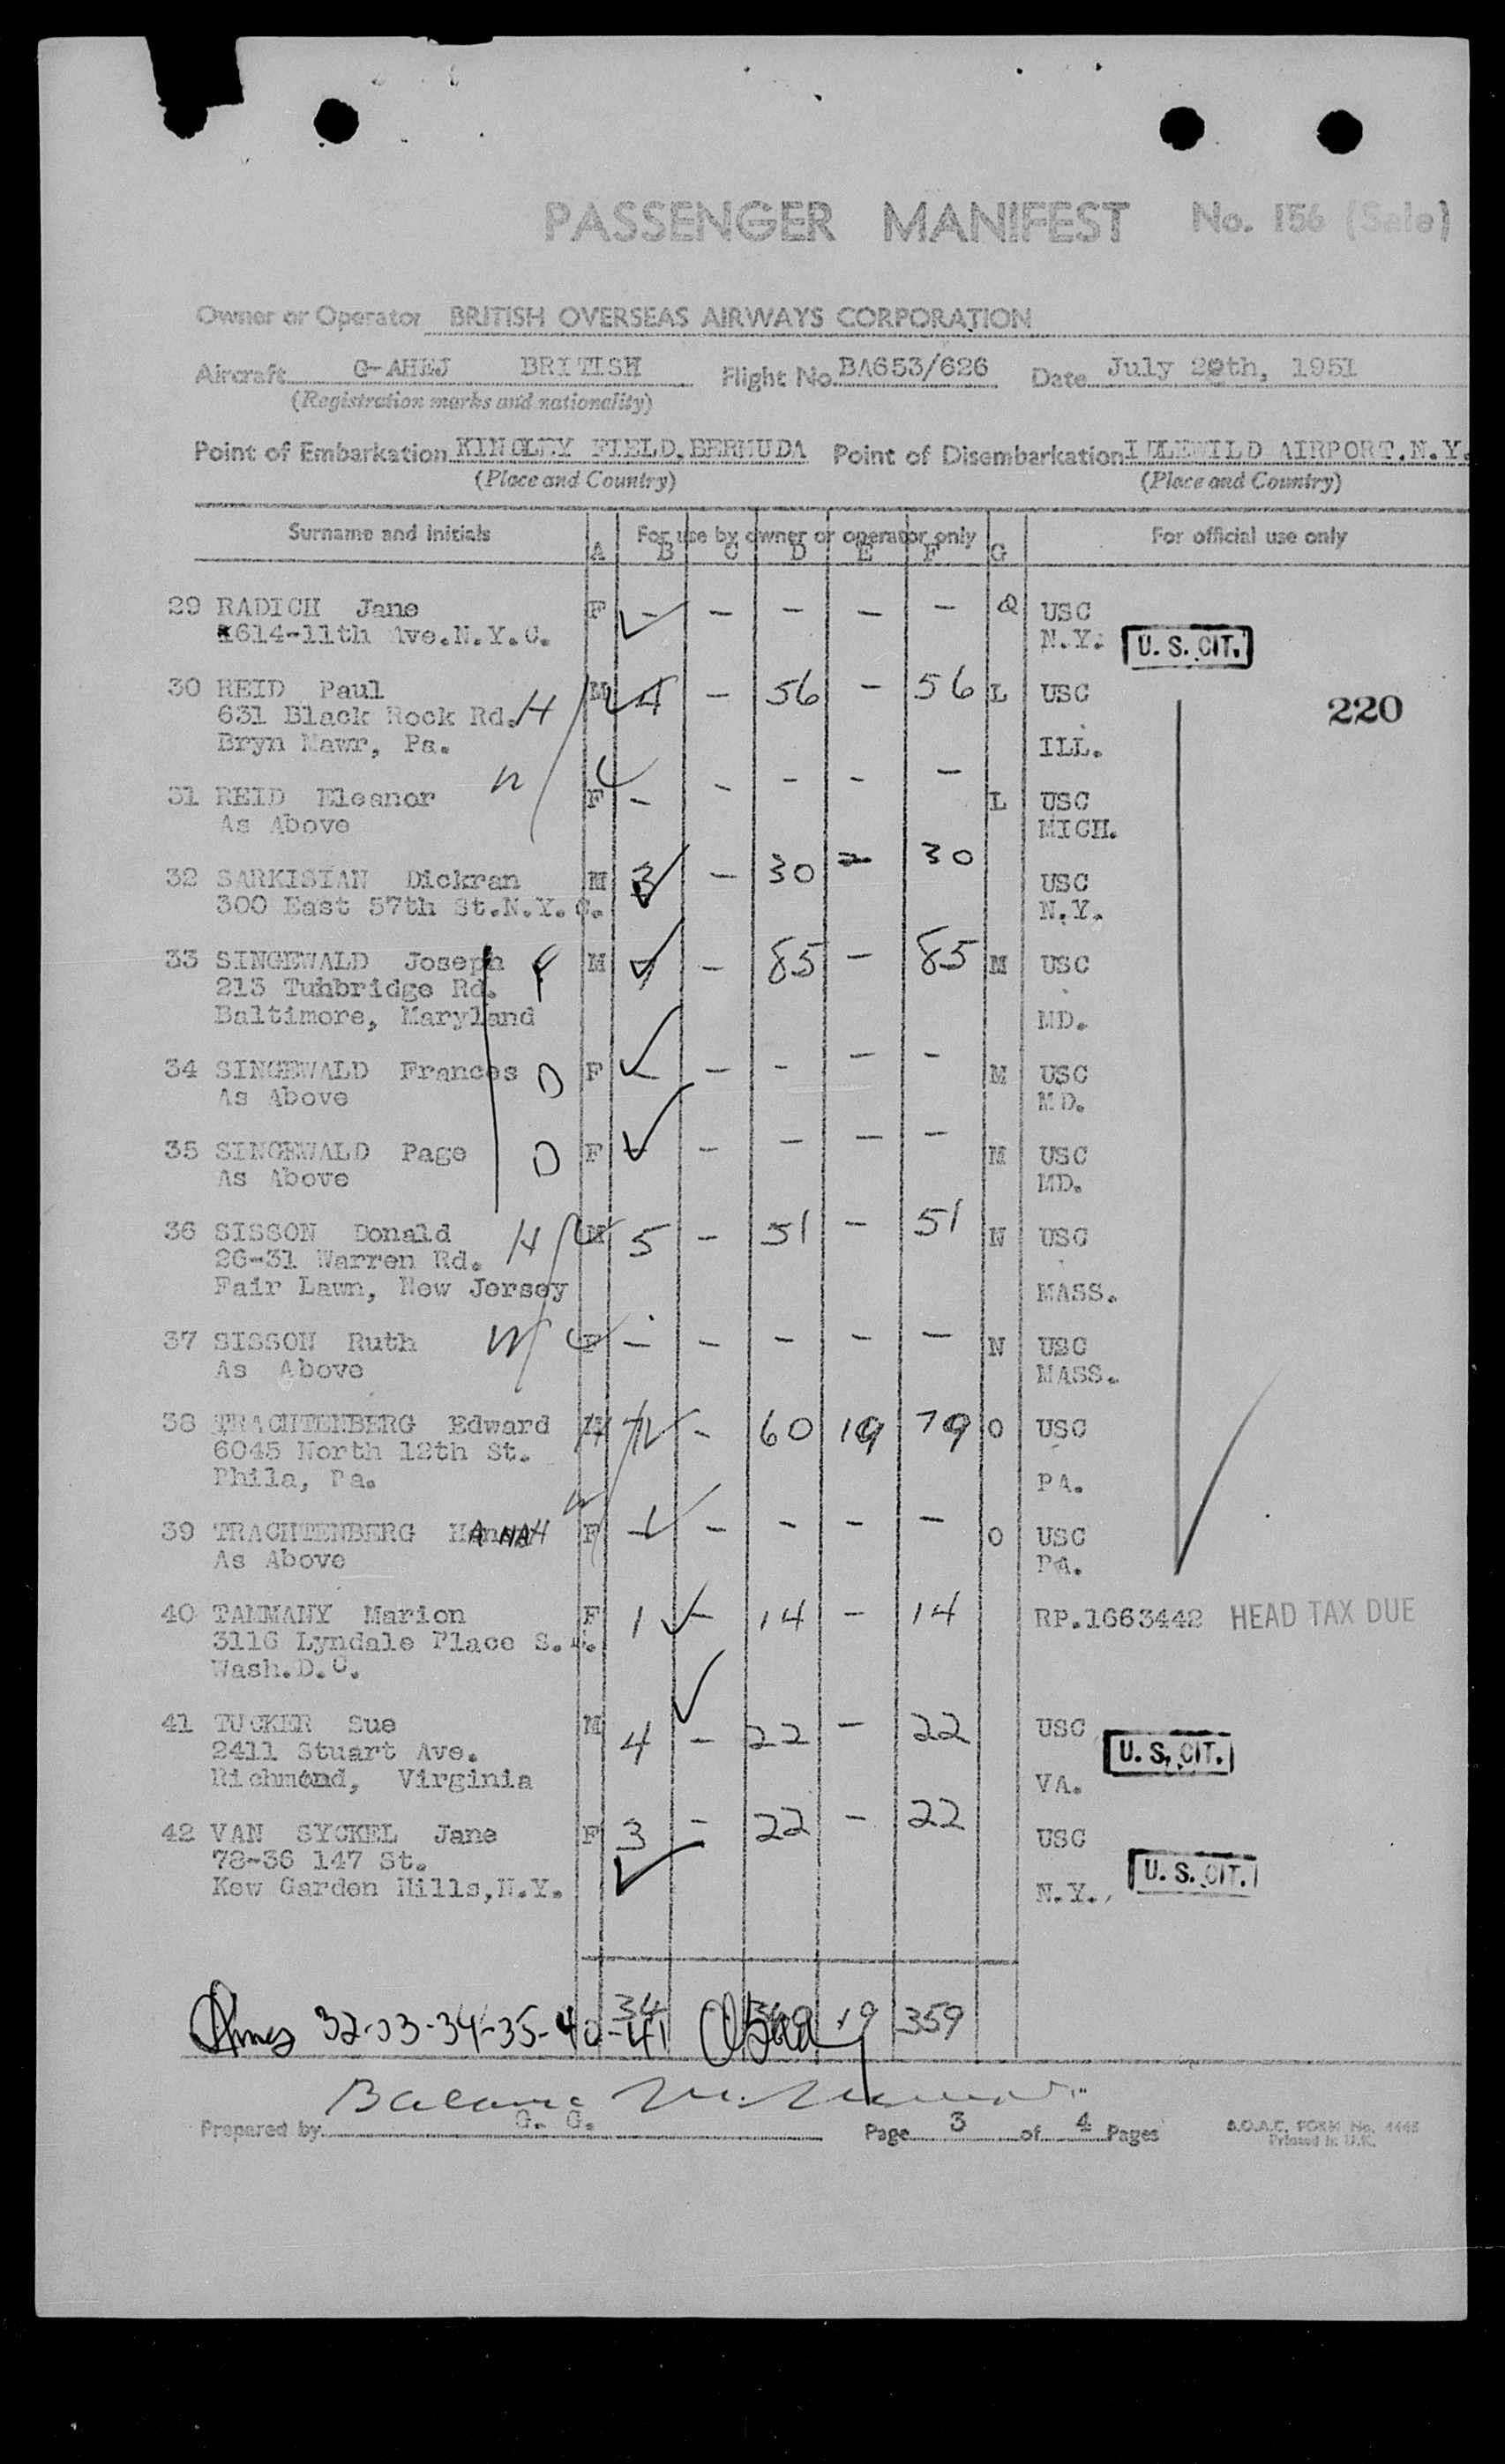 PASSENGER MANIFEST No. 156 (Sale)
Owner or Operator BRITISH OVERSEAS AIRWAYS CORPORATION
Aircraft G-AHEJ BRITISH Flight No. BA653/626 Date July 20th, 1951
(Registration marks and nationality)
Point of Embarkation KINDLEY FIELD, BERMUDA Point of Disembarkation IDLEWILD AIRPORT.N.Y.
(Place and Country) (Place and Country)
Surname and initials For use by owner or operator only For official use only
A B C D E F G
29 RADICH Jane F - - - - - Q USC
1614-11th Ave.N.Y.C. N.Y. U. S. CIT.
30 REID Paul H M 4 - 56 - 56 L USC
631 Black Rock Rd. 220
Bryn Mawr, Pa. ILL.
31 REID Eleanor W F - - - - - L USC
As Above MICH.
32 SARKISIAN Dickran M 3 - 30 - 30 USC
300 East 57th St.N.Y.C. N.Y.
33 SINGEWALD Joseph F M - 85 - 85 M USC
213 Tunbridge Rd.
Baltimore, Maryland MD.
34 SINGEWALD Frances D F - - - - - M USC
As Above MD.
35 SINGEWALD Page D F - - - - - M USC
As Above MD.
36 SISSON Donald H M 5 - 51 - 51 N USC
26-31 Warren Rd.
Fair Lawn, New Jersey MASS.
37 SISSON Ruth W F - - - - - N USC
As Above MASS.
38 TRACHTENBERG Edward H M 7 - 60 19 79 O USC
6045 North 12th St.
Phila, Pa. PA.
39 TRACHTENBERG HANNAH W F - - - - - O USC
As Above PA.
40 TAMMANY Marion F 1 - 14 - 14 RP.1663442 HEAD TAX DUE
3116 Lyndale Place S.E.
Wash.D.C.
41 TUCKER Sue M 4 - 22 - 22 USC
2411 Stuart Ave. U. S. CIT.
Richmond, Virginia VA.
42 VAN SYCKEL Jane F 3 - 22 - 22 USC
78-36 147 St. U. S. CIT.
Kew Garden Hills,N.Y. N.Y.
34 340 19 359
32-33-34-35-40-41
Balance
Prepared by G. G. Page 3 of 4 Pages B.O.A.C. FORM No. 4445
Printed in U.K.